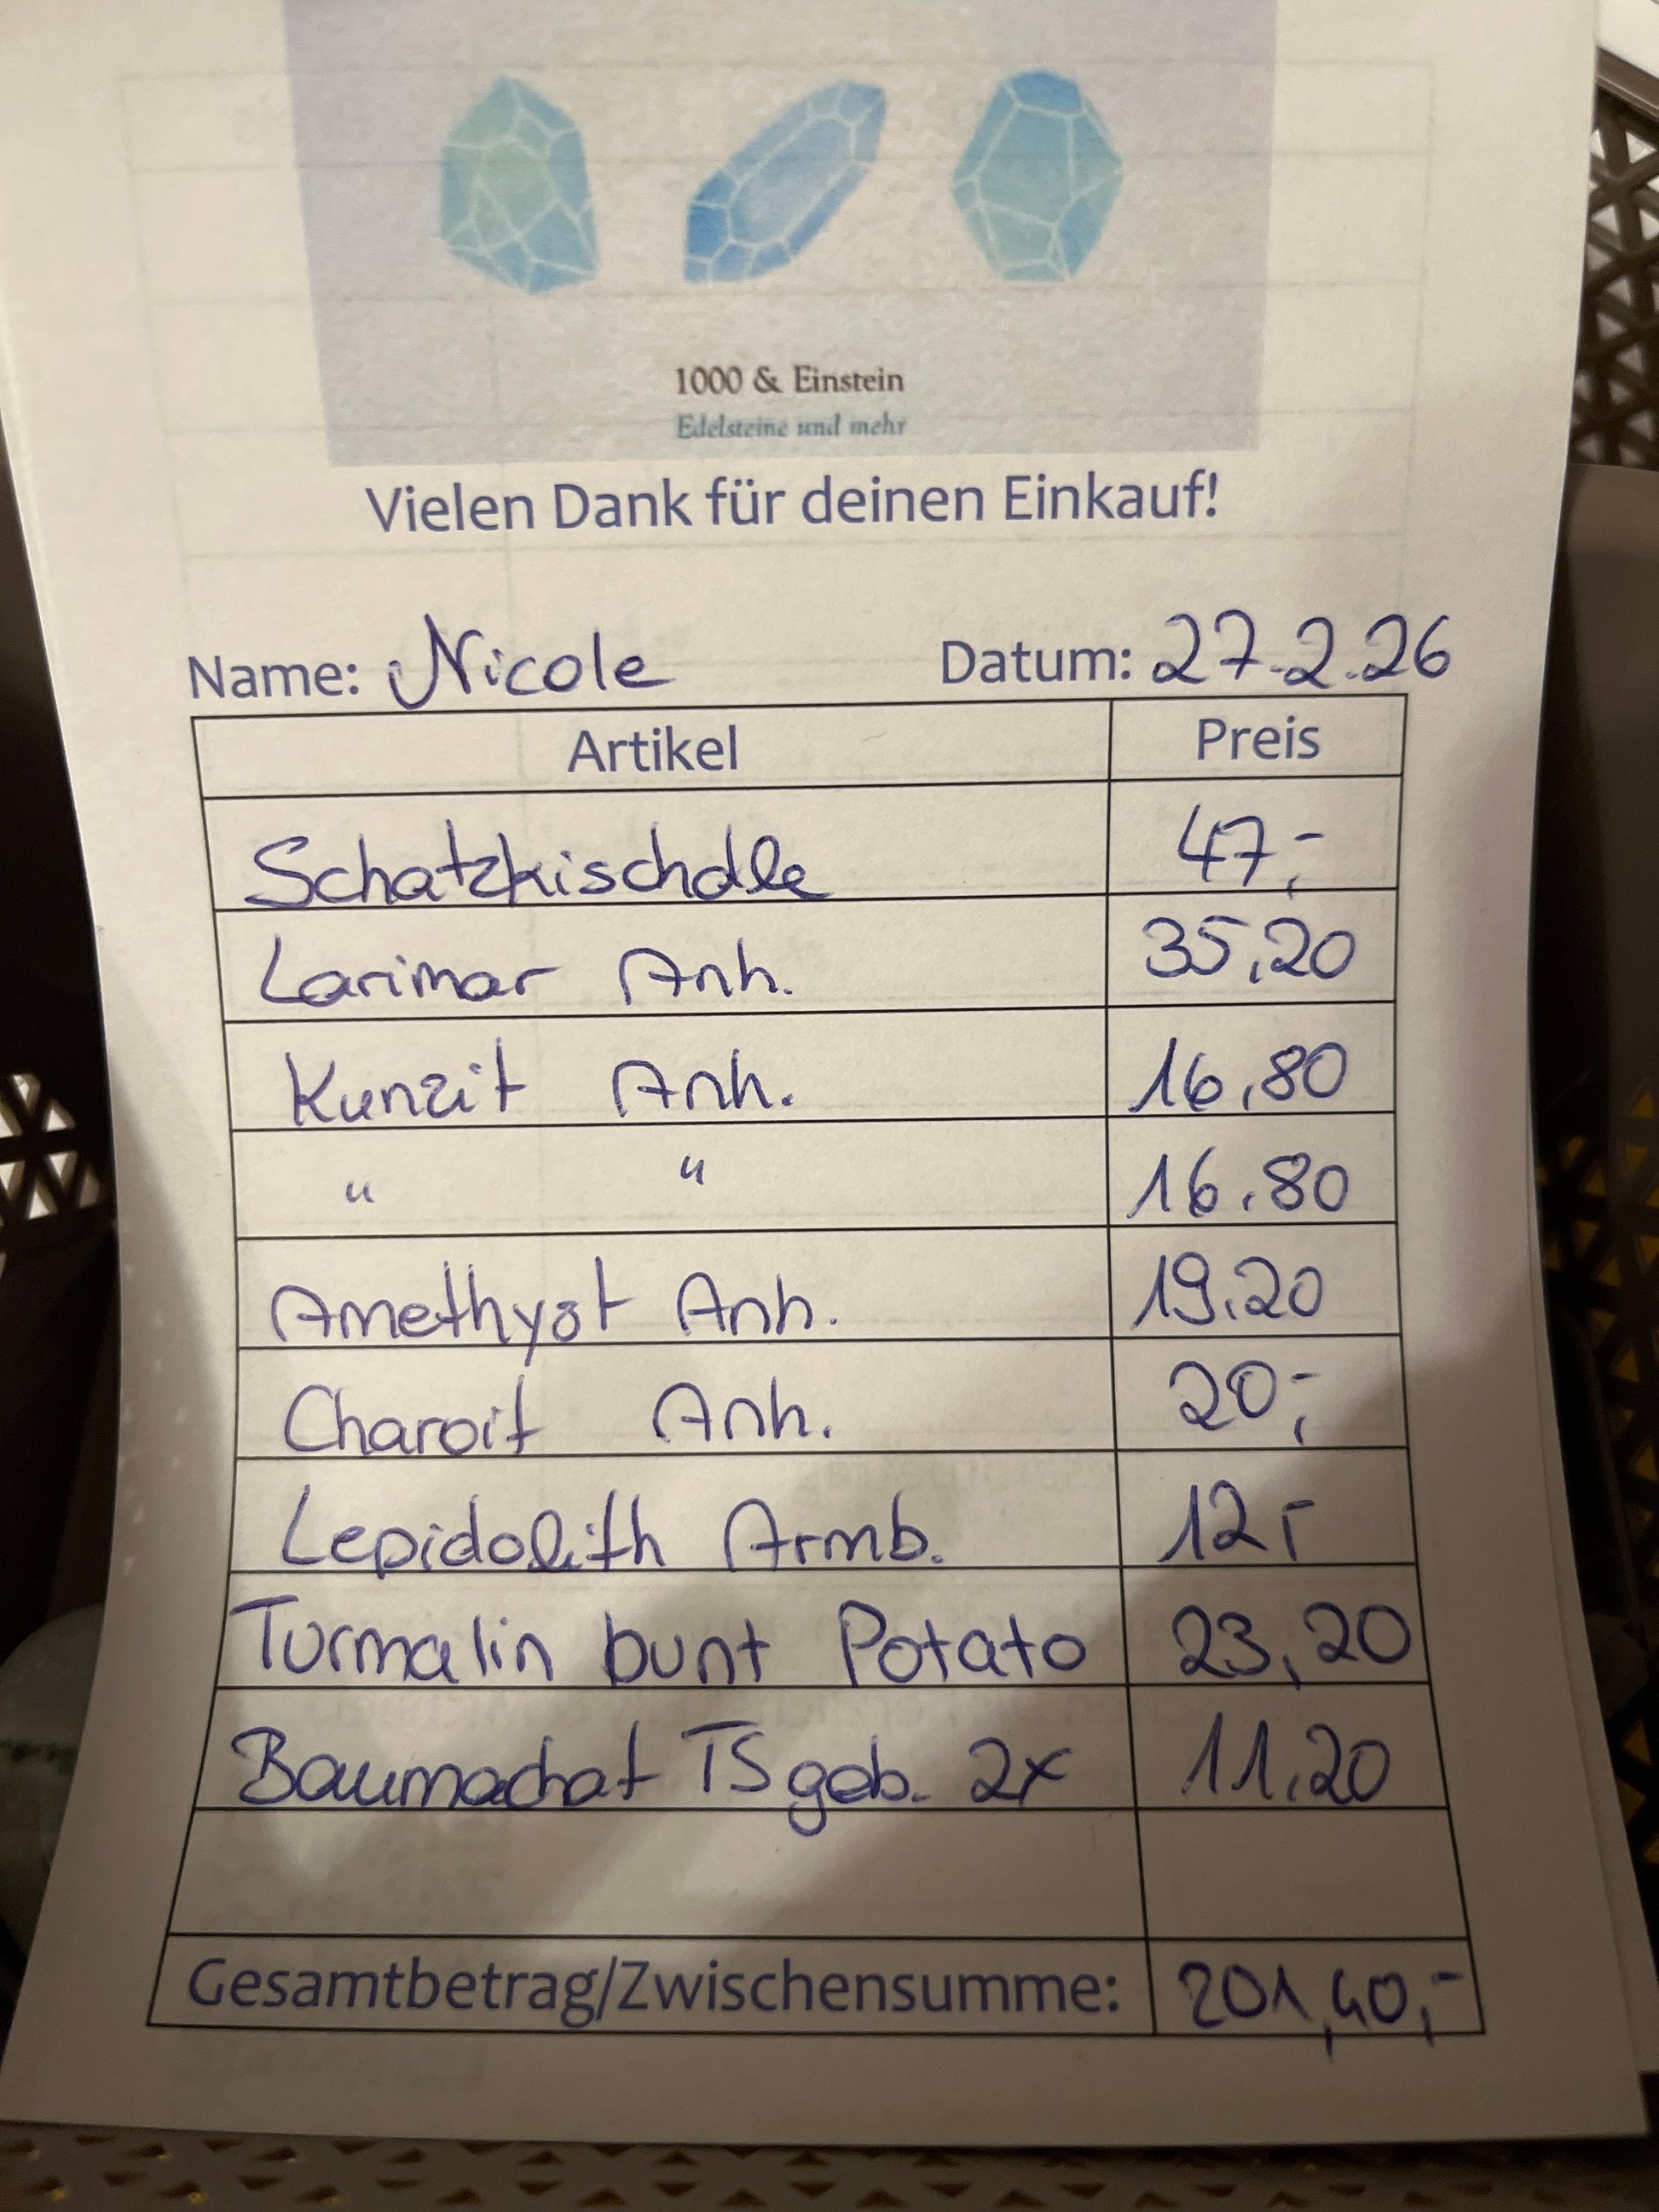 1000 & Einstein
Edelsteine und mehr
Vielen Dank für deinen Einkauf!
Name: Nicole Datum: 27.2.26
Artikel Preis
Schatzkischdle 47,-
Larimar Anh. 35,20
Kunzit Anh. 16,80
" " 16,80
Amethyst Anh. 19,20
Charoit Anh. 20,-
Lepidolith Armb. 12,-
Turmalin bunt Potato 23,20
Baumachat TS geb. 2x 11,20
Gesamtbetrag/Zwischensumme: 201,40,-